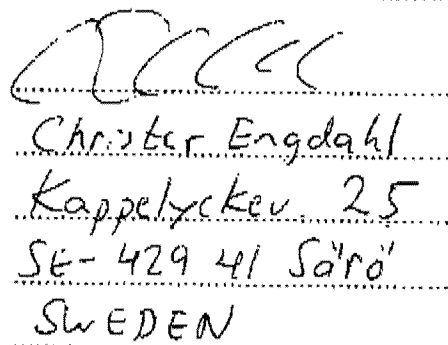 Christer Engdahl
Kappelyckev. 25
SE-429 41 Särö
SWEDEN